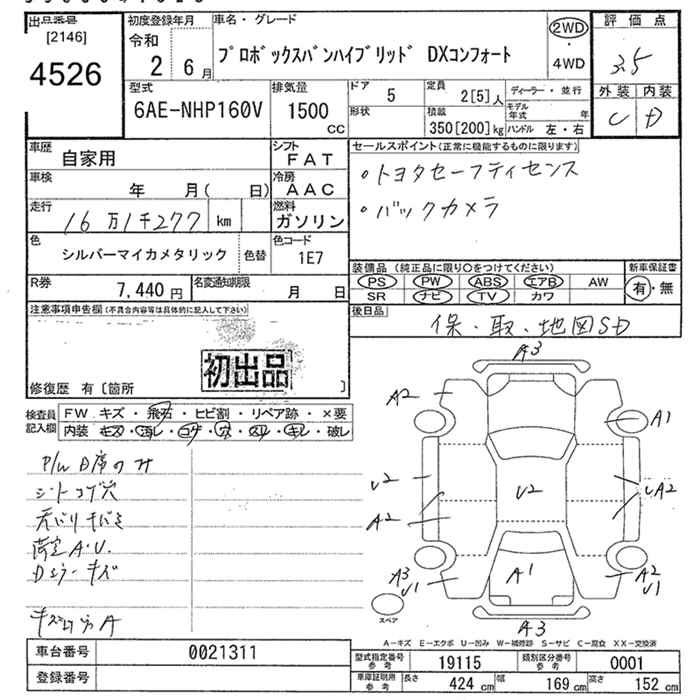 出品番号 初度登録年月 車名・グレード 評価点
[2146] 令和 ②WD
4526 2 6月 プロボックスバンハイブリッド DXコンフォート ・ 3.5
4WD
型式 排気量 ドア 5 定員 2[5]人 ディーラー・並行 外装 内装
6AE-NHP160V 1500 cc 形状 積載 350[200]kg モデル年式 年 C D
ハンドル 左・右
車歴 自家用 シフト FAT セールスポイント(正常に機能するものに限ります)
車検 年 月( 日) 冷房 AAC ・トヨタセーフティセンス
走行 16万1千277 km 燃料 ガソリン ・バックカメラ
色 シルバーマイカメタリック 色替 色コード 1E7
装備品(純正品に限り○をつけてください) 新車保証書
R券 7,440円 名変通知期限 月 日 PS PW ABS エアB AW 有・無
SR ナビ TV カワ
注意事項申告欄(不具合内容等は具体的に記入して下さい) 後日品 保・取・地図SD
初出品
修復歴 有〔箇所 〕
検査員記入欄 FW キズ・飛石・ヒビ割・リペア跡・×要
内装 キズ・汚レ・コゲ・穴・スレ・キレ・破レ
P/W D席のみ
シートコゲ穴
天バリキバミ
荷室A.U.
Dミラーキズ
A
A3
A2 A1
U2 U2 UA2
A2
A3 U1 A1 A2 U1
スペア
A3
A-キズ E-エクボ U-凹み W-補修跡 S-サビ C-腐食 XX-交換済
車台番号 0021311 型式指定番号 参考 19115 類別区分番号 参考 0001
登録番号 車庫証明用 参考 長さ 424 cm 幅 169 cm 高さ 152 cm